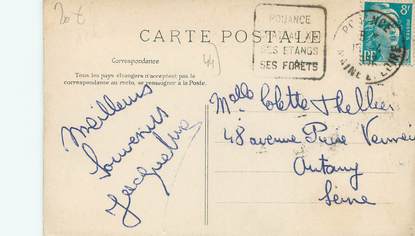 20 t
CARTE POSTALE
44
Correspondance
Tous les pays étrangers n'acceptent pas la
correspondance au recto, se renseigner à la Poste.
POUANCE
SES ETANGS
SES FORÊTS
POUANCE
MAINE ET LOIRE
8F
RF
Meilleurs
Souvenirs
Jacqueline
Melle Colette Thellier
48 avenue
Antony
Seine